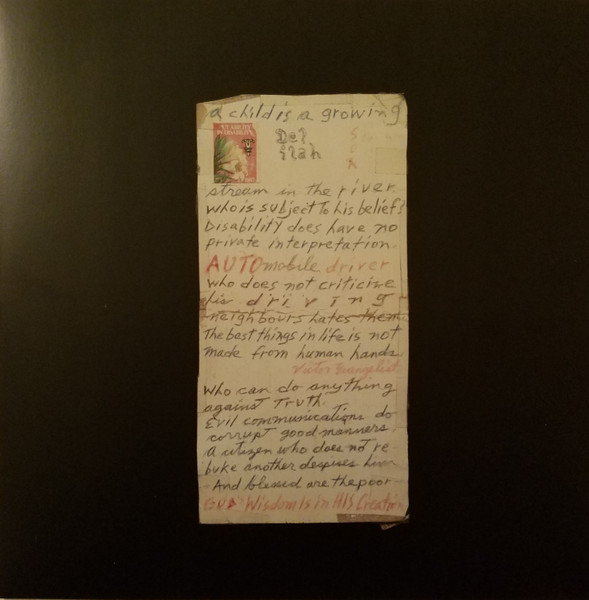 a child is a growing
stream in the river
who is subject to his belief?
Disability does have no
private interpretation.
AUTOmobile driver
who does not criticize
his driving
neighbours hates them
The best things in life is not
made from human hands
Evangelist
Who can do anything
against Truth.
Evil communications do
corrupt good manners.
A citizen who does not re
buke another despises him
And blessed are the poor
GOD Wisdom is in HIS Creation